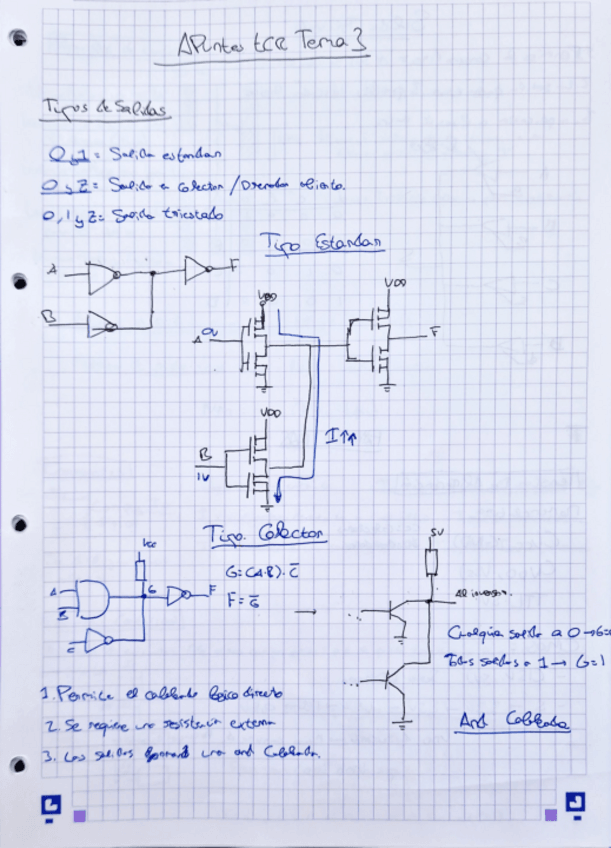 Apuntes tce Tema 3
Tipos de Salidas
0 y 1 = Salida estandar
0 y Z = Salida en Colector / Drenador abierto.
0, 1 y Z = Salida triestado
Tipo Estandar
A
F
B
VDD
VDD
A 0V
F
VDD
B
1V
I↑↑
Tipo Colector
Vcc
G = (A·B)·C̅
F = G̅
A
B
G
F
C
→
5V
...
Al inversor.
...
Cualquier salida a 0 → G=
Todas salidas a 1 → G=1
And Cableada
1. Permite el cableado lógico directo
2. Se requiere una resistencia externa
3. Las salidas forman una and Cableada.